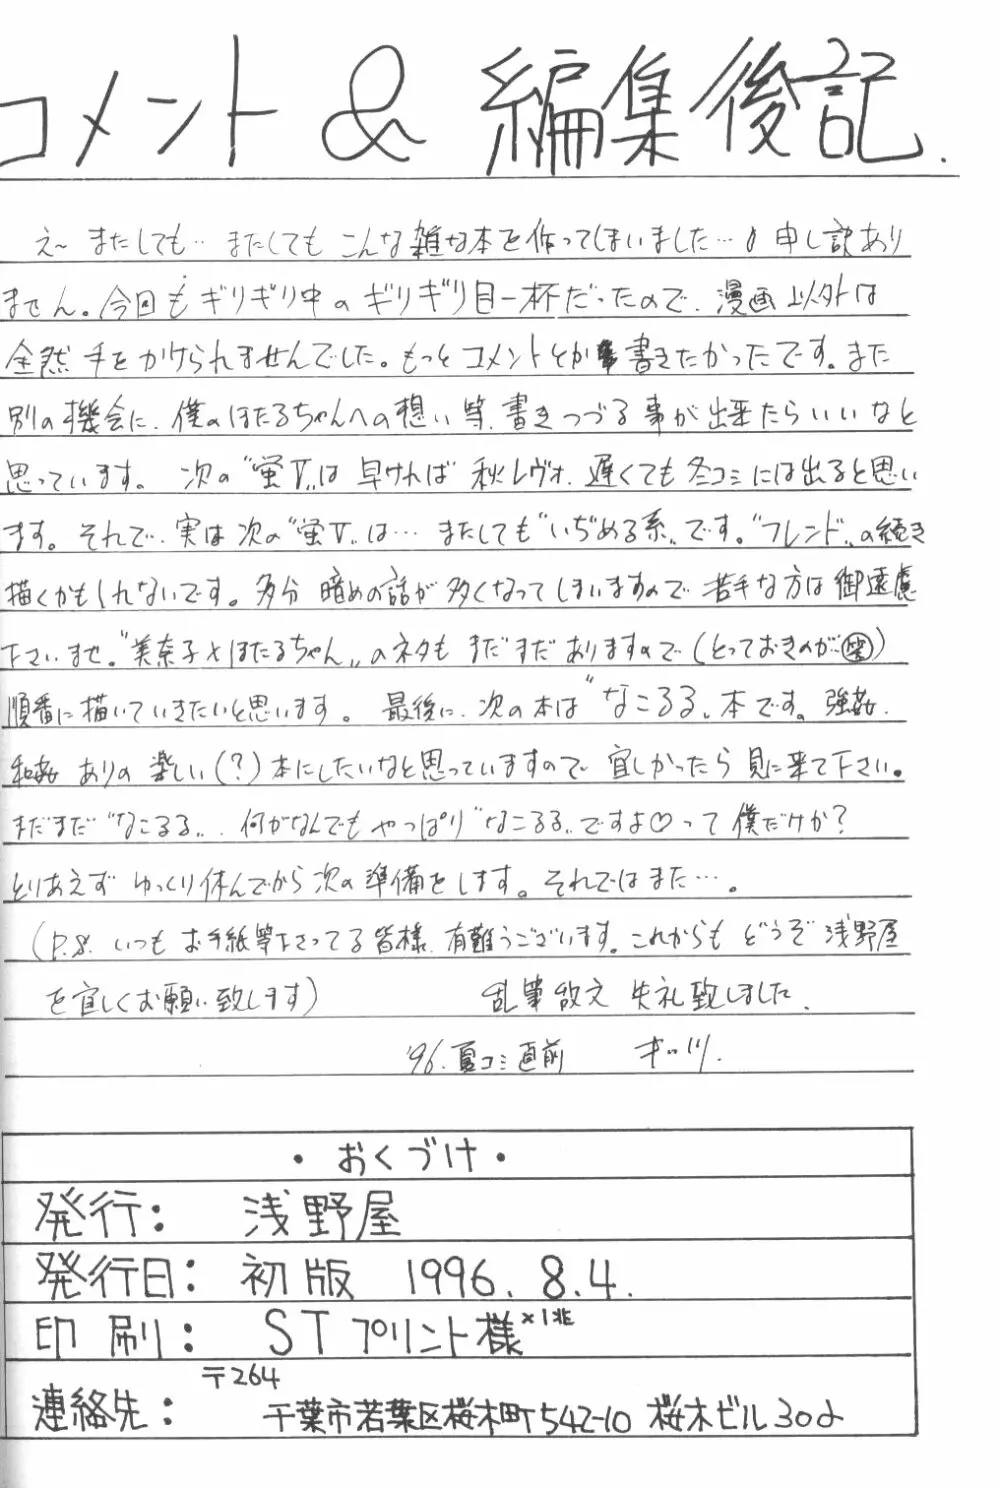 コメント & 編集後記.
え〜 またしても‥ またしても こんな雑な本を作ってしまいました…♪ 申し訳あり
ません。今回も ギリギリ中の ギリギリ目一杯だったので、漫画以外は
全然 手をかけられませんでした。もっと コメントとか 書きたかったです。また
別の機会に、僕のほたるちゃんへの想い等、書きつづる事が出来たらいいなと
思っています。 次の"蛍Ⅴ"は 早ければ 秋レヴォ、遅くても冬コミには出ると思い
ます。それで、実は次の"蛍Ⅴ"は… またしても"いぢめる系"です。"フレンド"の続き
描くかもしれないです。多分 暗めの話が多くなってしまいますので 苦手な方は御遠慮
下さいませ。"美奈子とほたるちゃん"のネタも まだまだありますので(とっておきのが㊤笑)
順番に描いていきたいと思います。 最後に、次の本は"なこるる"本です。強姦、
和姦 ありの 楽しい(?)本にしたいなと思っていますので 宜しかったら見に来て下さい。
まだまだ"なこるる"、何がなんでも やっぱり"なこるる"ですよ♡って 僕だけか?
とりあえず ゆっくり休んでから次の準備をします。それではまた…。
(P.S. いつも お手紙等下さってる皆様、有難うございます。これからも どうぞ 浅野屋
を宜しくお願い致します) 乱筆散文 失礼致しました。
'96.夏コミ直前
・おくづけ・
発行: 浅野屋
発行日: 初版 1996. 8.4.
印刷: STプリント様×1兆
連絡先: 〒264
千葉市若葉区桜木町542-10 桜木ビル